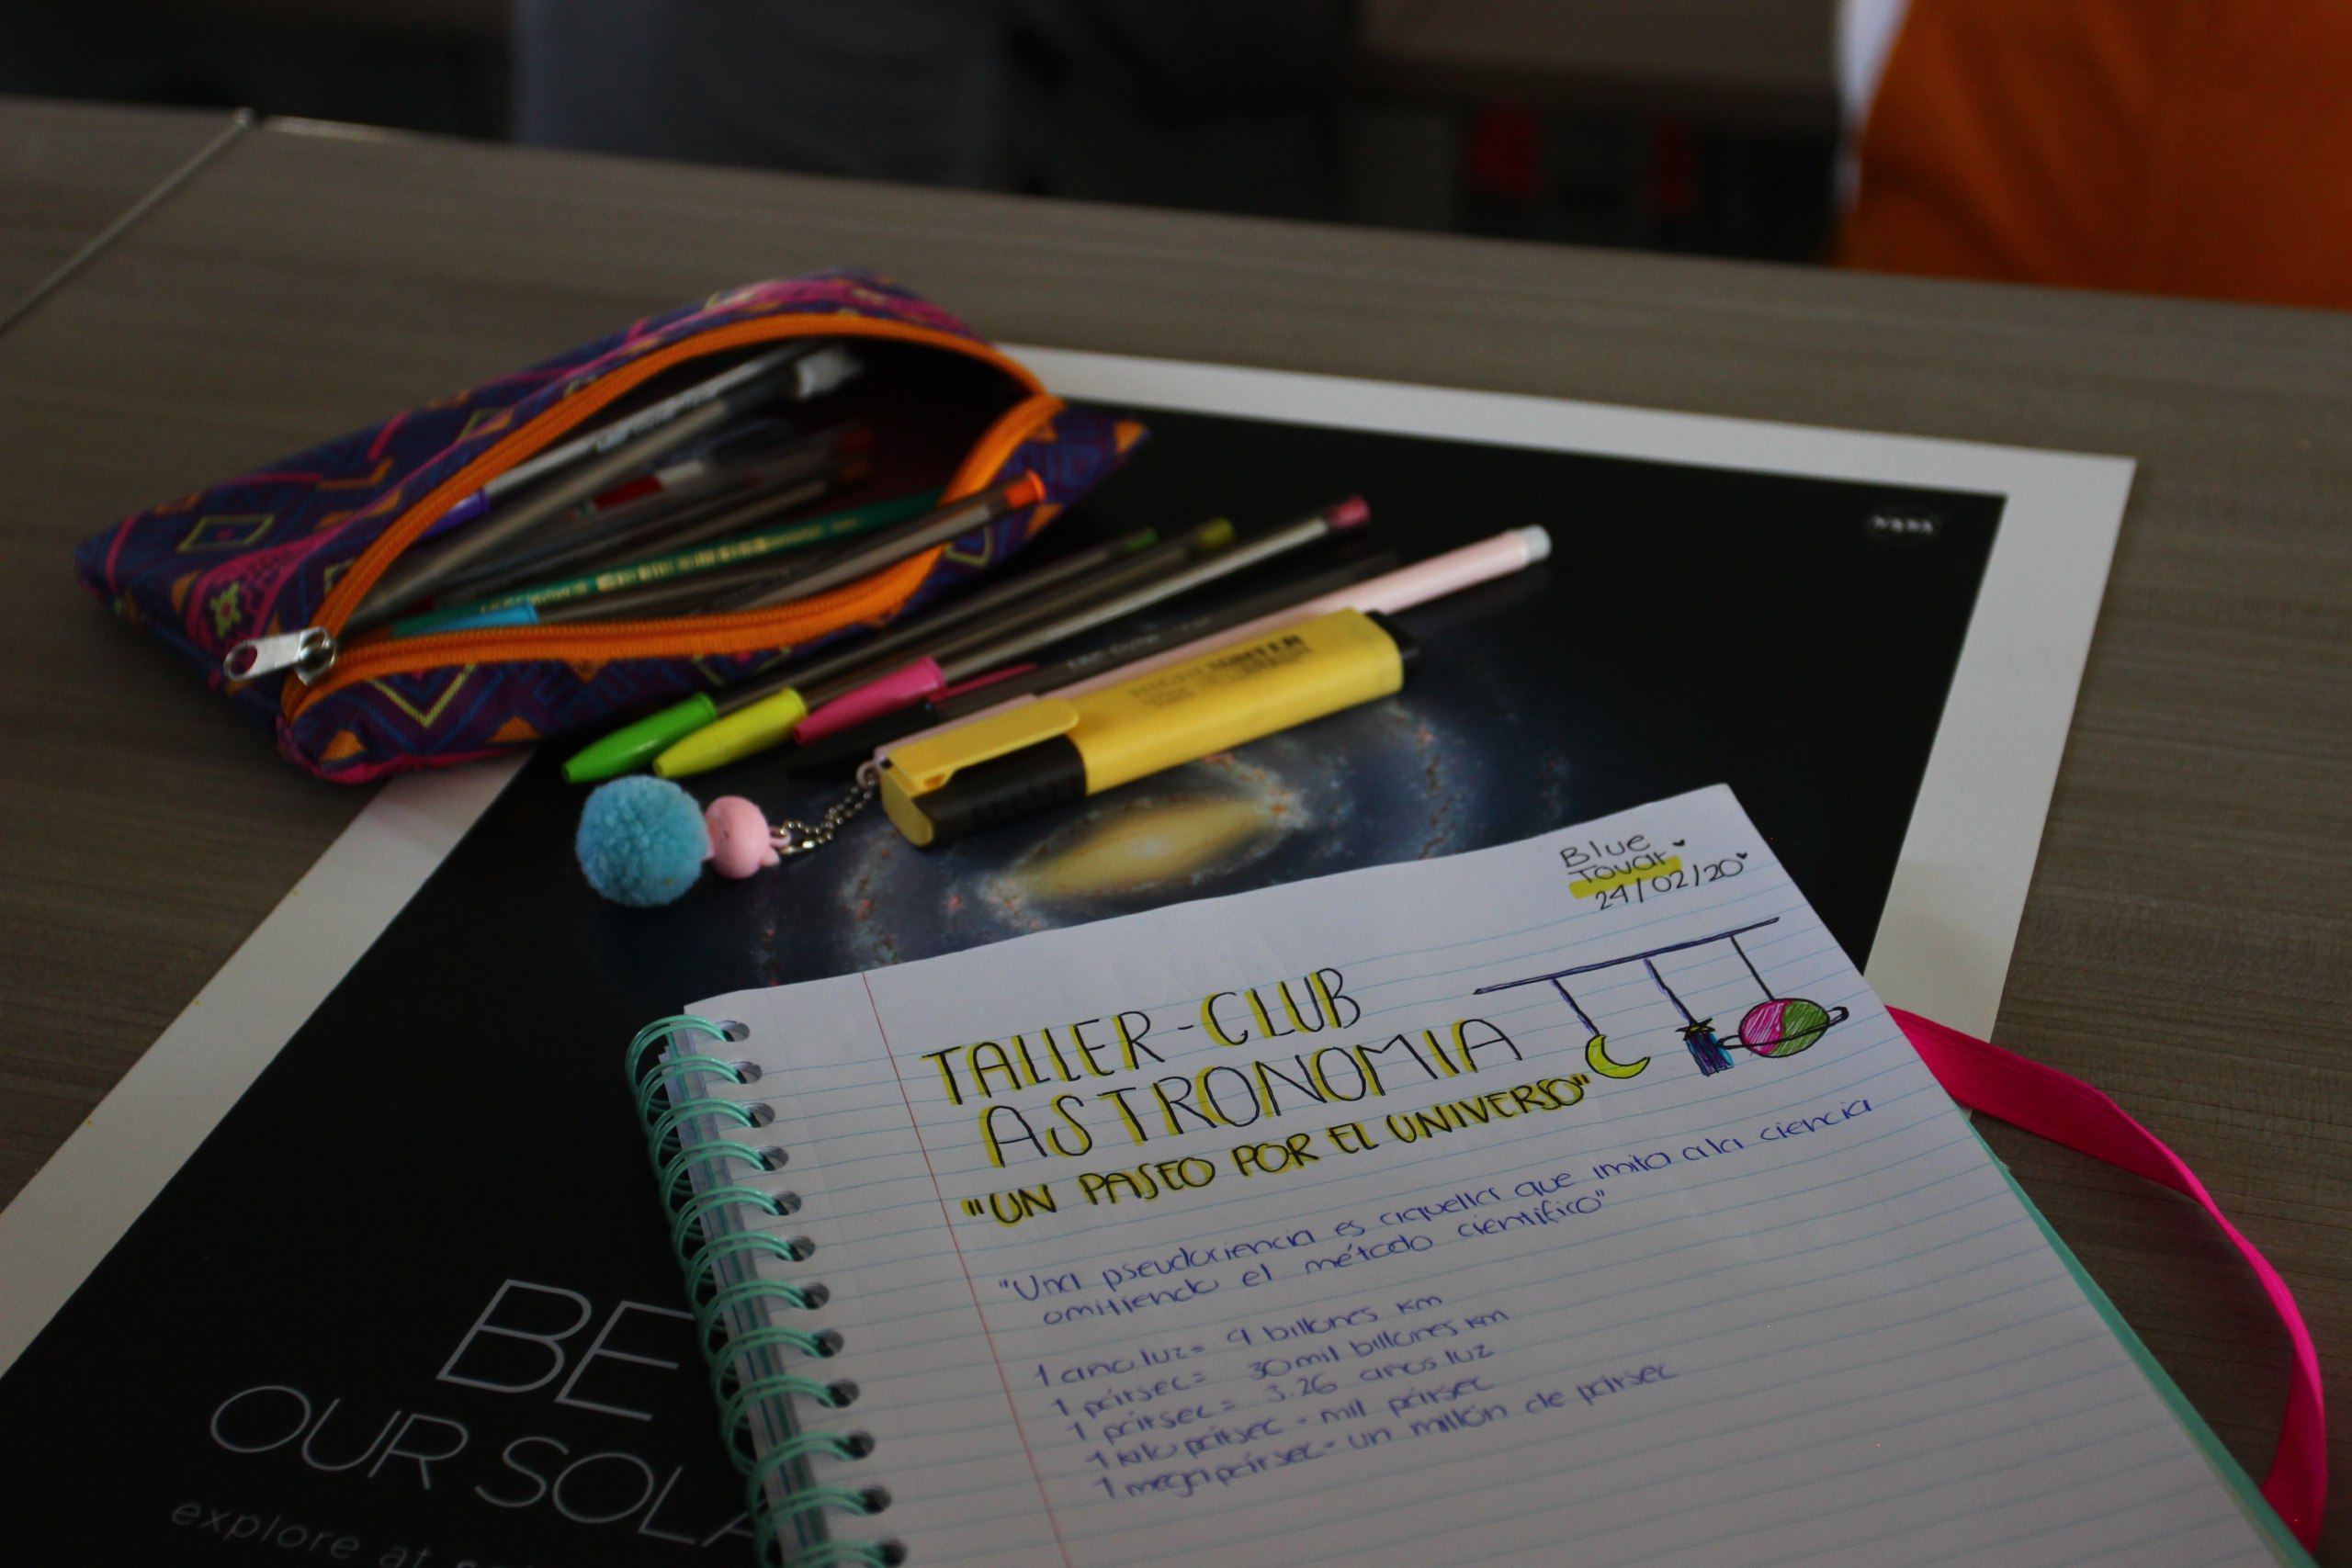 NASA
Blue
Tovar
24/02/20
TALLER-CLUB
ASTRONOMIA
"UN PASEO POR EL UNIVERSO"
"Una pseudociencia es aquella que imita a la ciencia
omitiendo el método científico"
1 año luz = 9 billones km
1 pársec = 30 mil billones km
1 pársec = 3.26 años luz
1 kilo pársec - mil pársec
1 megapársec - un millón de pársec
BE
OUR SOLA
explore at